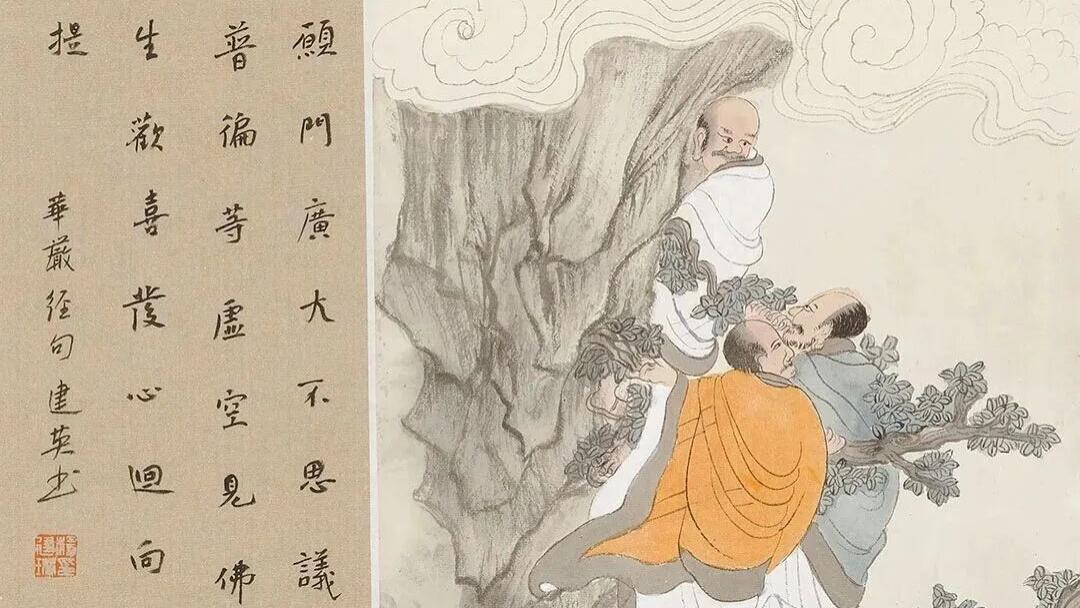 願門廣大不思議
普徧等虛空見佛
生歡喜發心迴向
提
華嚴經句建英书